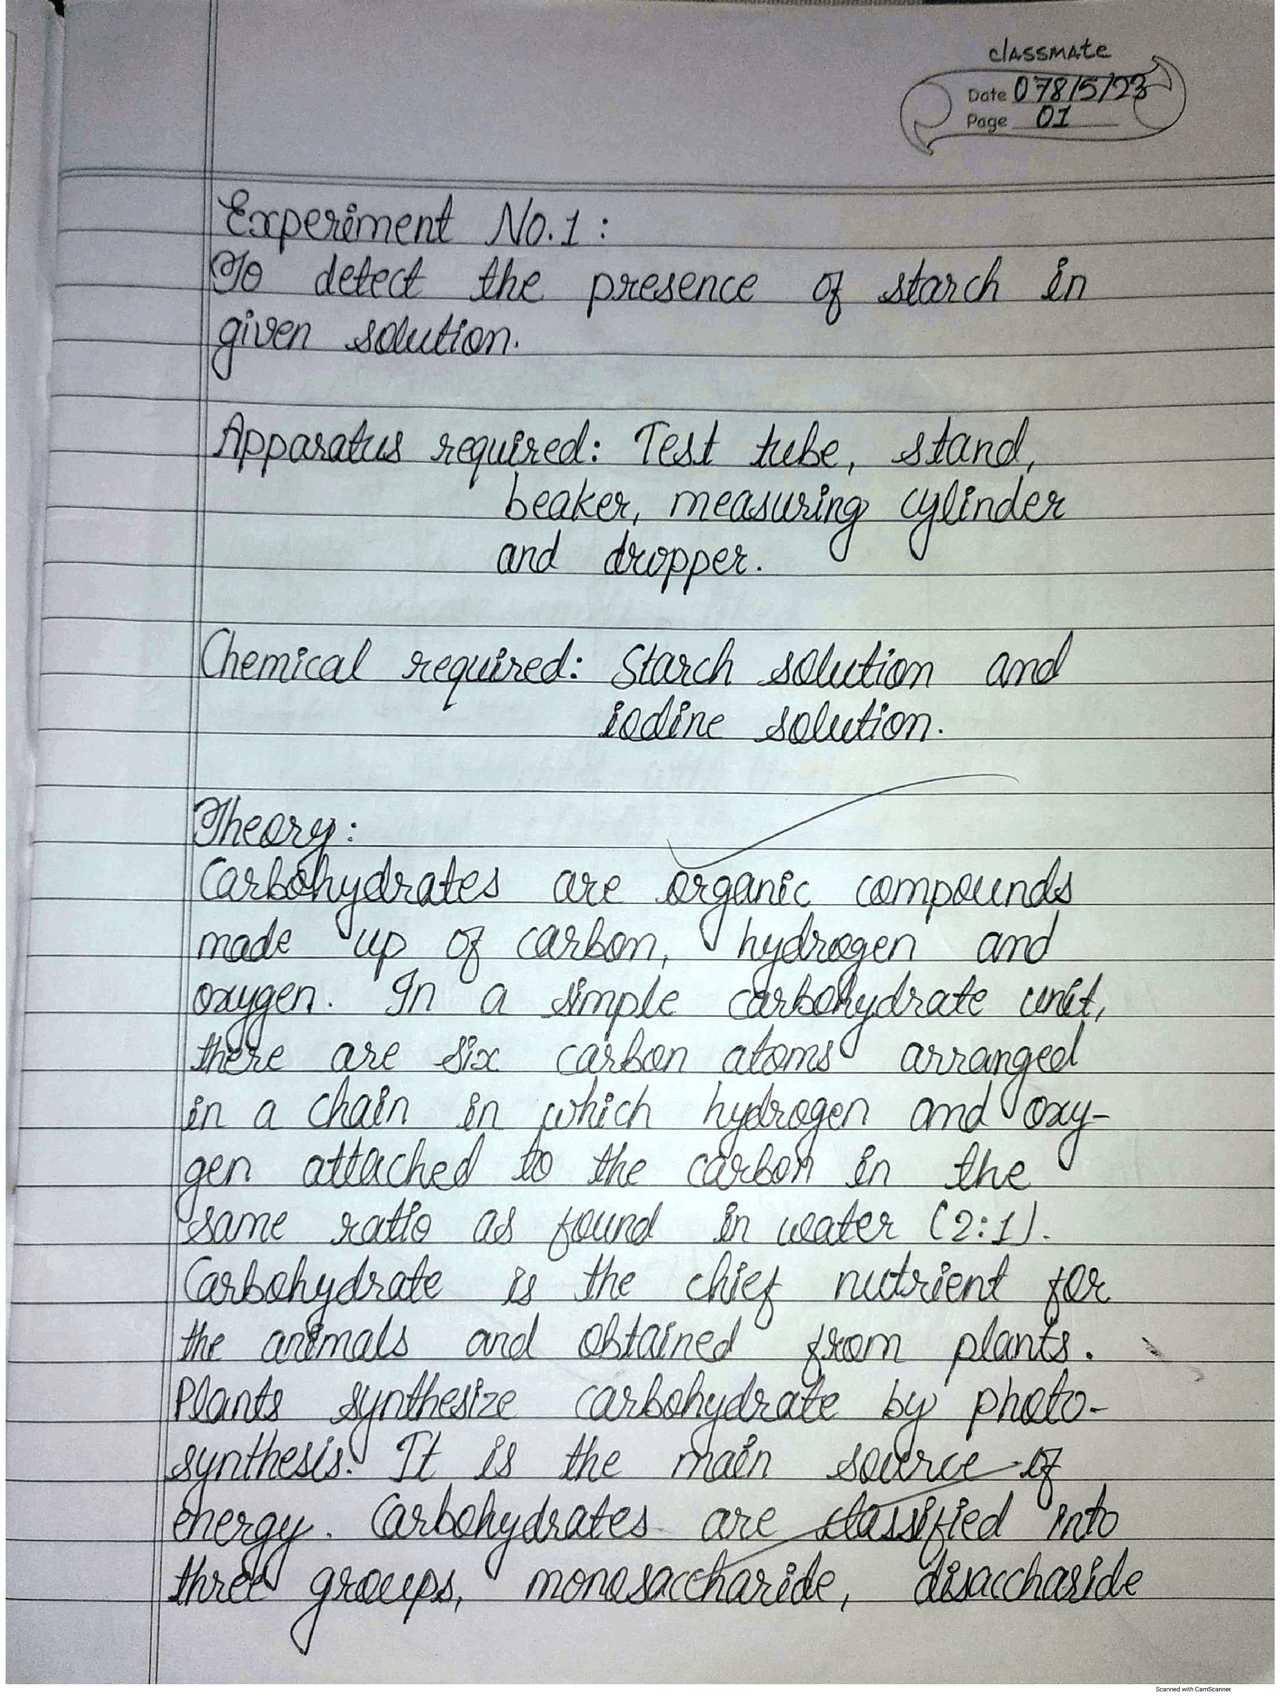 classmate
Date 078/5/23
Page 01
Experiment No.1:
To detect the presence of starch in
given solution.
Apparatus required: Test tube, stand,
beaker, measuring cylinder
and dropper.
Chemical required: Starch solution and
iodine solution.
Theory:
Carbohydrates are organic compounds
made up of carbon, hydrogen and
oxygen. In a simple carbohydrate unit,
there are six carbon atoms arranged
in a chain in which hydrogen and oxy-
gen attached to the carbon in the
same ratio as found in water (2:1).
Carbohydrate is the chief nutrient for
the animals and obtained from plants.
Plants synthesize carbohydrate by photo-
synthesis. It is the main source of
energy. Carbohydrates are classified into
three groups, monosaccharide, disaccharide
Scanned with CamScanner